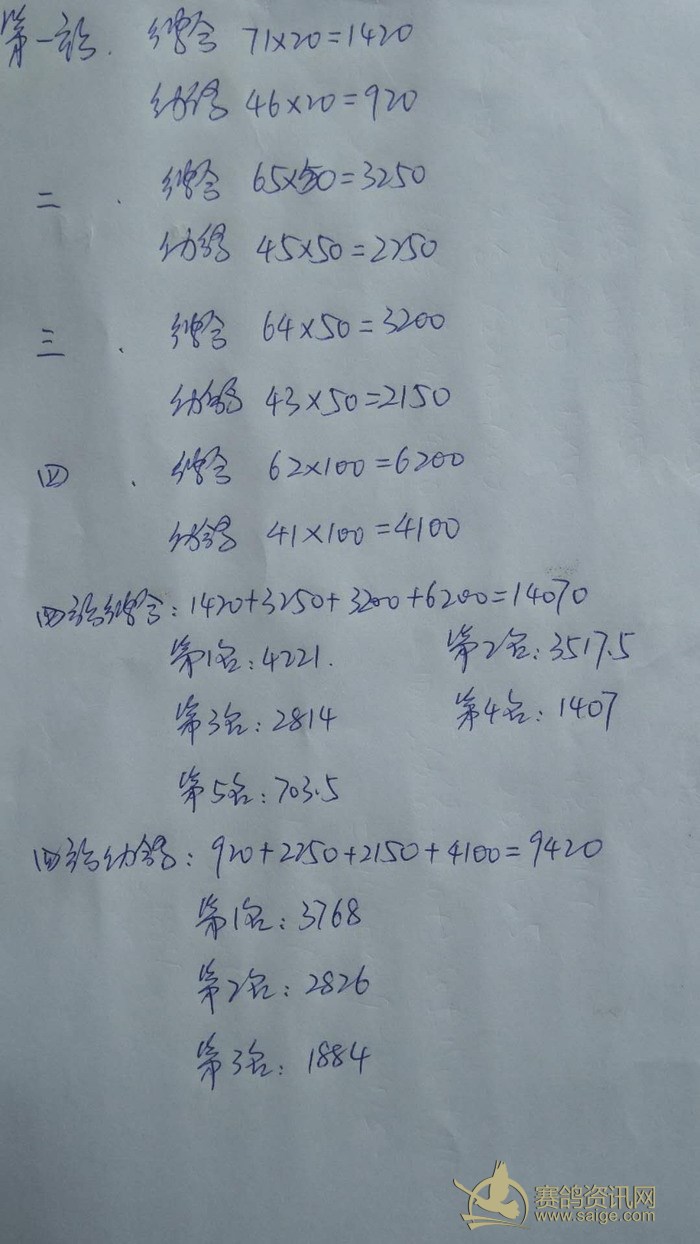 第一站. 综合 71×20=1420
幼鸽 46×20=920
二 . 综合 65×50=3250
幼鸽 45×50=2250
三 . 综合 64×50=3200
幼鸽 43×50=2150
四 . 综合 62×100=6200
幼鸽 41×100=4100
四站综合:1420+3250+3200+6200=14070
第1名:4221. 第2名:3517.5
第3名:2814 第4名:1407
第5名:703.5
四站幼鸽:920+2250+2150+4100=9420
第1名:3768
第2名:2826
第3名:1884
赛鸽资讯网
www.saige.com